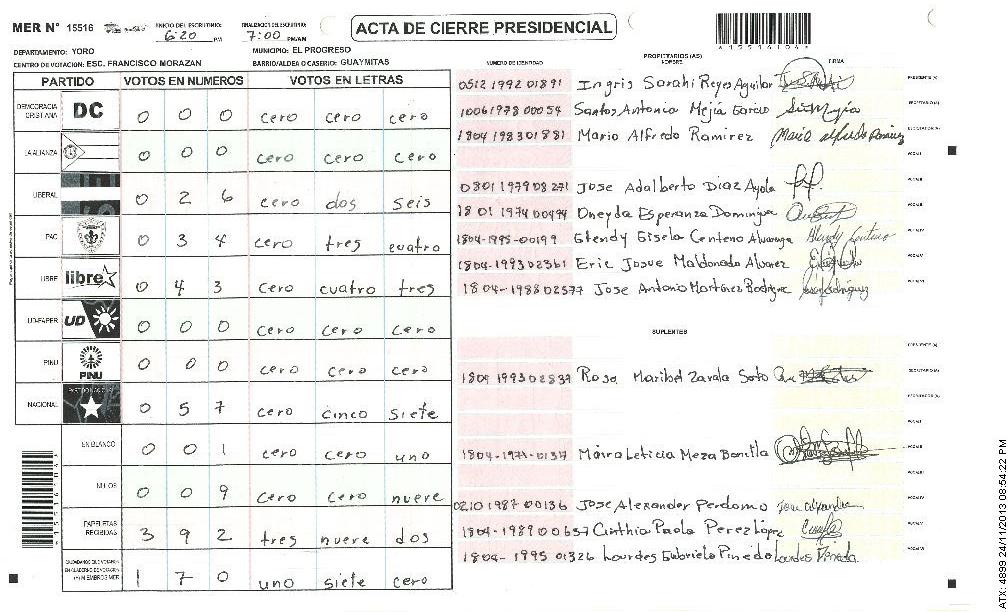 MER N° 15516 INICIO DEL ESCRUTINIO: 6:20 PM FINALIZACION DEL ESCRUTINIO: 7:00 PM/AM
ACTA DE CIERRE PRESIDENCIAL
DEPARTAMENTO: YORO MUNICIPIO: EL PROGRESO
CENTRO DE VOTACION: ESC. FRANCISCO MORAZAN BARRIO/ALDEA O CASERIO: GUAYMITAS
PARTIDO VOTOS EN NUMEROS VOTOS EN LETRAS
DEMOCRACIA CRISTIANA DC 0 0 0 cero cero cero
LA ALIANZA 0 0 0 cero cero cero
LIBERAL 0 2 6 cero dos seis
PAC 0 3 4 cero tres cuatro
LIBRE libre 0 4 3 cero cuatro tres
UD-FAPER UD 0 0 0 cero cero cero
PINU PINU 0 0 0 cero cero cero
NACIONAL 0 5 7 cero cinco siete
EN BLANCO 0 0 1 cero cero uno
NULOS 0 0 9 cero cero nueve
PAPELETAS RECIBIDAS 3 9 2 tres nueve dos
CIUDADANOS QUE VOTARON EN CUADERNO DE VOTACION (+) MIEMBROS MER 1 7 0 uno siete cero
PROPIETARIOS (AS)
NUMERO DE IDENTIDAD NOMBRE FIRMA
0512 1992 01891 Ingris Sarahi Reyes Aguilar PRESIDENTE (A)
10061978 00054 Santos Antonio Mejía Garcia SECRETARIO (A)
1804 198301881 Mario Alfredo Ramirez Mario Alfredo Ramirez ESCRUTADOR (A)
VOCAL I
0801 1979 08271 Jose Adalberto Diaz Ayala VOCAL II
1801 1974 00494 Oneyda Esperanza Dominga VOCAL III
1804-1995-00199 Glendy Gisela Centeno Alvarenga Glendy Centeno VOCAL IV
1804-1993 02361 Eric Josue Maldonado Alvarez VOCAL V
1804-1988 02577 Jose Antonio Martinez Rodrigue VOCAL VI
SUPLENTES
PRESIDENTE (A)
1804 1993 02837 Rosa Maribel Zavala Soto SECRETARIO (A)
ESCRUTADOR (A)
VOCAL I
1804-1971-0137 Maira Leticia Meza Bonilla VOCAL II
VOCAL III
0210 1987 00136 Jose Alexander Perdomo VOCAL IV
1804-1989 00637 Cinthia Paola Perez López VOCAL V
1804-1995 01326 Lourdes Gabriela Pineda Lourdes Pineda VOCAL VI
ATX: 4899 24/11/2013 08:54:22 PM